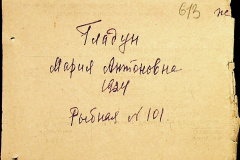 613 ж
Гладун
Мария Антоновна
1924
Рыбная N 101